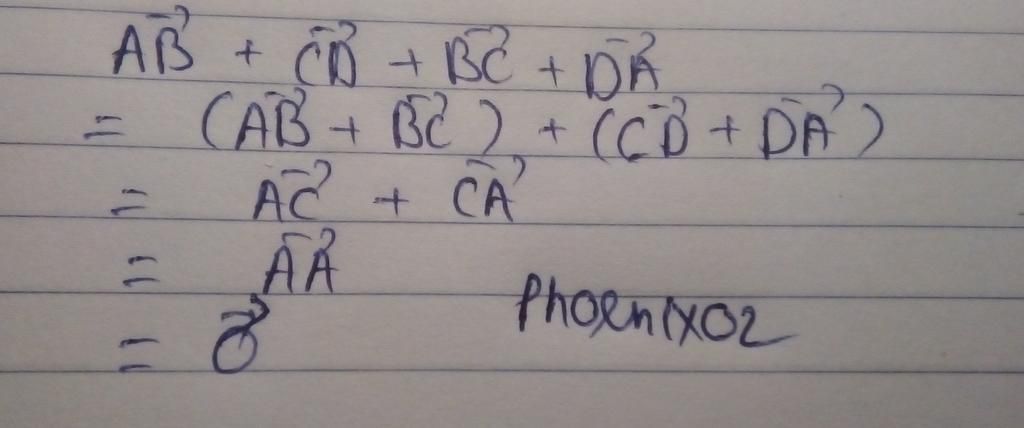 AB⃗ + CD⃗ + BC⃗ + DA⃗
= (AB⃗ + BC⃗) + (CD⃗ + DA⃗)
= AC⃗ + CA⃗
= AA⃗
= 0⃗
Phoenix02